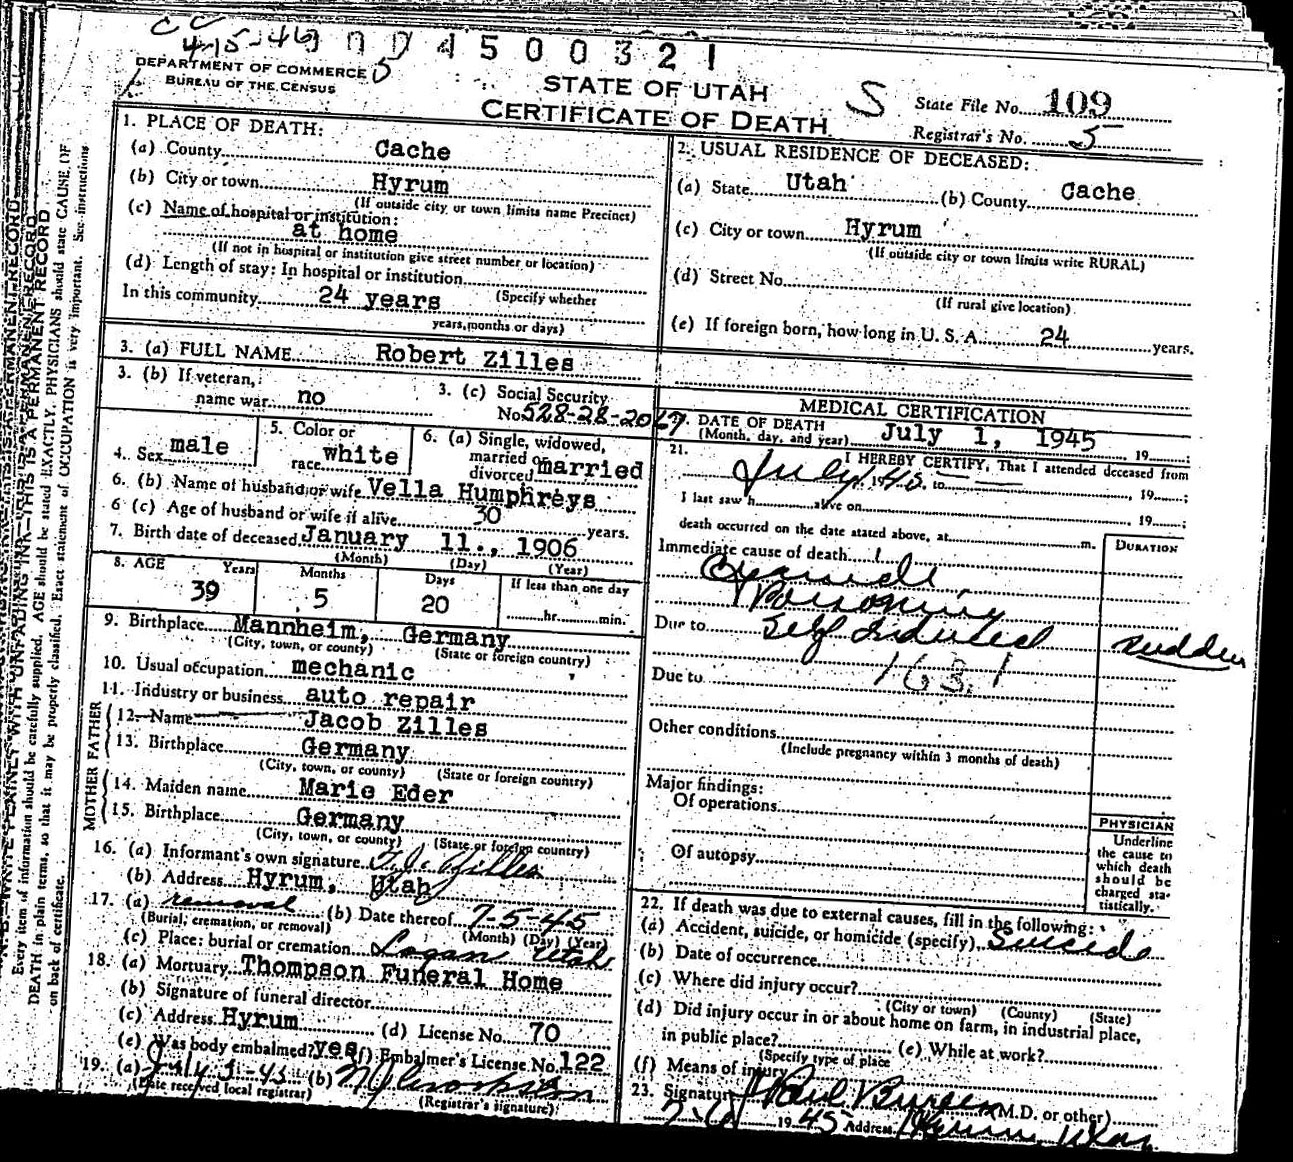 4-15-46
4500321
DEPARTMENT OF COMMERCE
BUREAU OF THE CENSUS
5
STATE OF UTAH
CERTIFICATE OF DEATH
S
State File No. 109
Registrar's No. 5
1. PLACE OF DEATH:
(a) County Cache
(b) City or town Hyrum
(If outside city or town limits name Precinct)
(c) Name of hospital or institution:
at home
(If not in hospital or institution give street number or location)
(d) Length of stay: In hospital or institution
(Specify whether
In this community 24 years
years, months or days)
2. USUAL RESIDENCE OF DECEASED:
(a) State Utah (b) County Cache
(c) City or town Hyrum
(If outside city or town limits write RURAL)
(d) Street No.
(If rural give location)
(e) If foreign born, how long in U. S. A. 24 years.
3. (a) FULL NAME Robert Zilles
3. (b) If veteran,
name war no
3. (c) Social Security
No. 528-28-2067
4. Sex male
5. Color or
race white
6. (a) Single, widowed,
married or
divorced married
6. (b) Name of husband or wife Vella Humphreys
6 (c) Age of husband or wife if alive 30 years.
7. Birth date of deceased January 11., 1906
(Month) (Day) (Year)
8. AGE Years Months Days If less than one day
39 5 20 hr. min.
9. Birthplace Mannheim, Germany
(City, town, or county) (State or foreign country)
10. Usual occupation mechanic
11. Industry or business auto repair
FATHER
12. Name Jacob Zilles
13. Birthplace Germany
(City, town, or county) (State or foreign country)
MOTHER
14. Maiden name Marie Eder
15. Birthplace Germany
(City, town, or county) (State or foreign country)
16. (a) Informant's own signature Zilles
(b) Address Hyrum, Utah
17. (a) removal (b) Date thereof 7-5-45
(Burial, cremation, or removal) (Month) (Day) (Year)
(c) Place: burial or cremation Logan Utah
18. (a) Mortuary Thompson Funeral Home
(b) Signature of funeral director
(c) Address Hyrum (d) License No. 70
(e) Was body embalmed? yes (f) Embalmer's License No. 122
19. (a) July (b)
(Date received local registrar) (Registrar's signature)
MEDICAL CERTIFICATION
DATE OF DEATH
(Month, day, and year) July 1, 1945, 19
21. I HEREBY CERTIFY, That I attended deceased from
July 1, 1945, to , 19 ;
I last saw h alive on , 19 ;
death occurred on the date stated above, at m.
Immediate cause of death
DURATION
Cyanide
Poisoning
Due to Self Induced sudden
163.1
Due to
Other conditions
(Include pregnancy within 3 months of death)
Major findings:
Of operations
Of autopsy
PHYSICIAN
Underline
the cause to
which death
should be
charged sta-
tistically.
22. If death was due to external causes, fill in the following:
(a) Accident, suicide, or homicide (specify) Suicide
(b) Date of occurrence
(c) Where did injury occur?
(City or town) (County) (State)
(d) Did injury occur in or about home on farm, in industrial place,
in public place? (e) While at work?
(Specify type of place
(f) Means of injury
23. Signature Paul (M.D. or other)
1945 Address Hyrum, Utah
THIS IS A PERMANENT RECORD
Every item of information should be carefully supplied. AGE should be stated EXACTLY. PHYSICIANS should state CAUSE OF
DEATH in plain terms, so that it may be properly classified. Exact statement of OCCUPATION is very important. See instructions
on back of certificate.